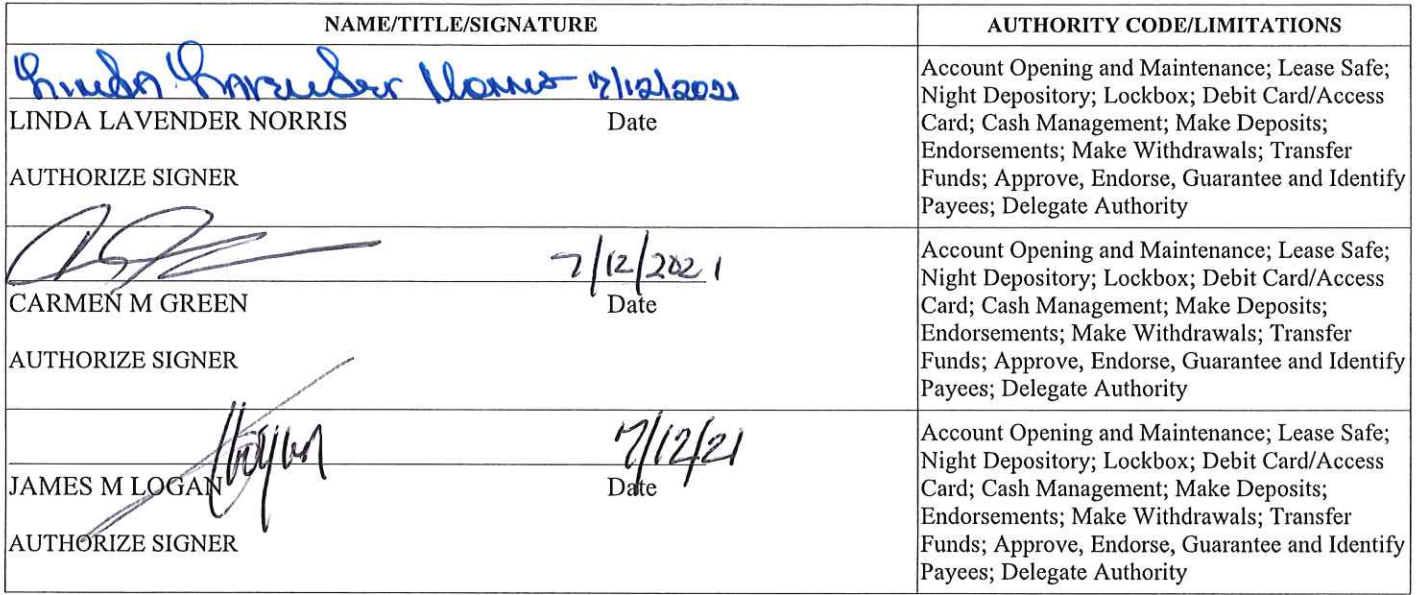 NAME/TITLE/SIGNATURE
AUTHORITY CODE/LIMITATIONS
Linda Lavender Norris 7/12/2021
LINDA LAVENDER NORRIS Date
AUTHORIZE SIGNER
Account Opening and Maintenance; Lease Safe;
Night Depository; Lockbox; Debit Card/Access
Card; Cash Management; Make Deposits;
Endorsements; Make Withdrawals; Transfer
Funds; Approve, Endorse, Guarantee and Identify
Payees; Delegate Authority
7/12/2021
CARMEN M GREEN Date
AUTHORIZE SIGNER
Account Opening and Maintenance; Lease Safe;
Night Depository; Lockbox; Debit Card/Access
Card; Cash Management; Make Deposits;
Endorsements; Make Withdrawals; Transfer
Funds; Approve, Endorse, Guarantee and Identify
Payees; Delegate Authority
7/12/21
JAMES M LOGAN Date
AUTHORIZE SIGNER
Account Opening and Maintenance; Lease Safe;
Night Depository; Lockbox; Debit Card/Access
Card; Cash Management; Make Deposits;
Endorsements; Make Withdrawals; Transfer
Funds; Approve, Endorse, Guarantee and Identify
Payees; Delegate Authority